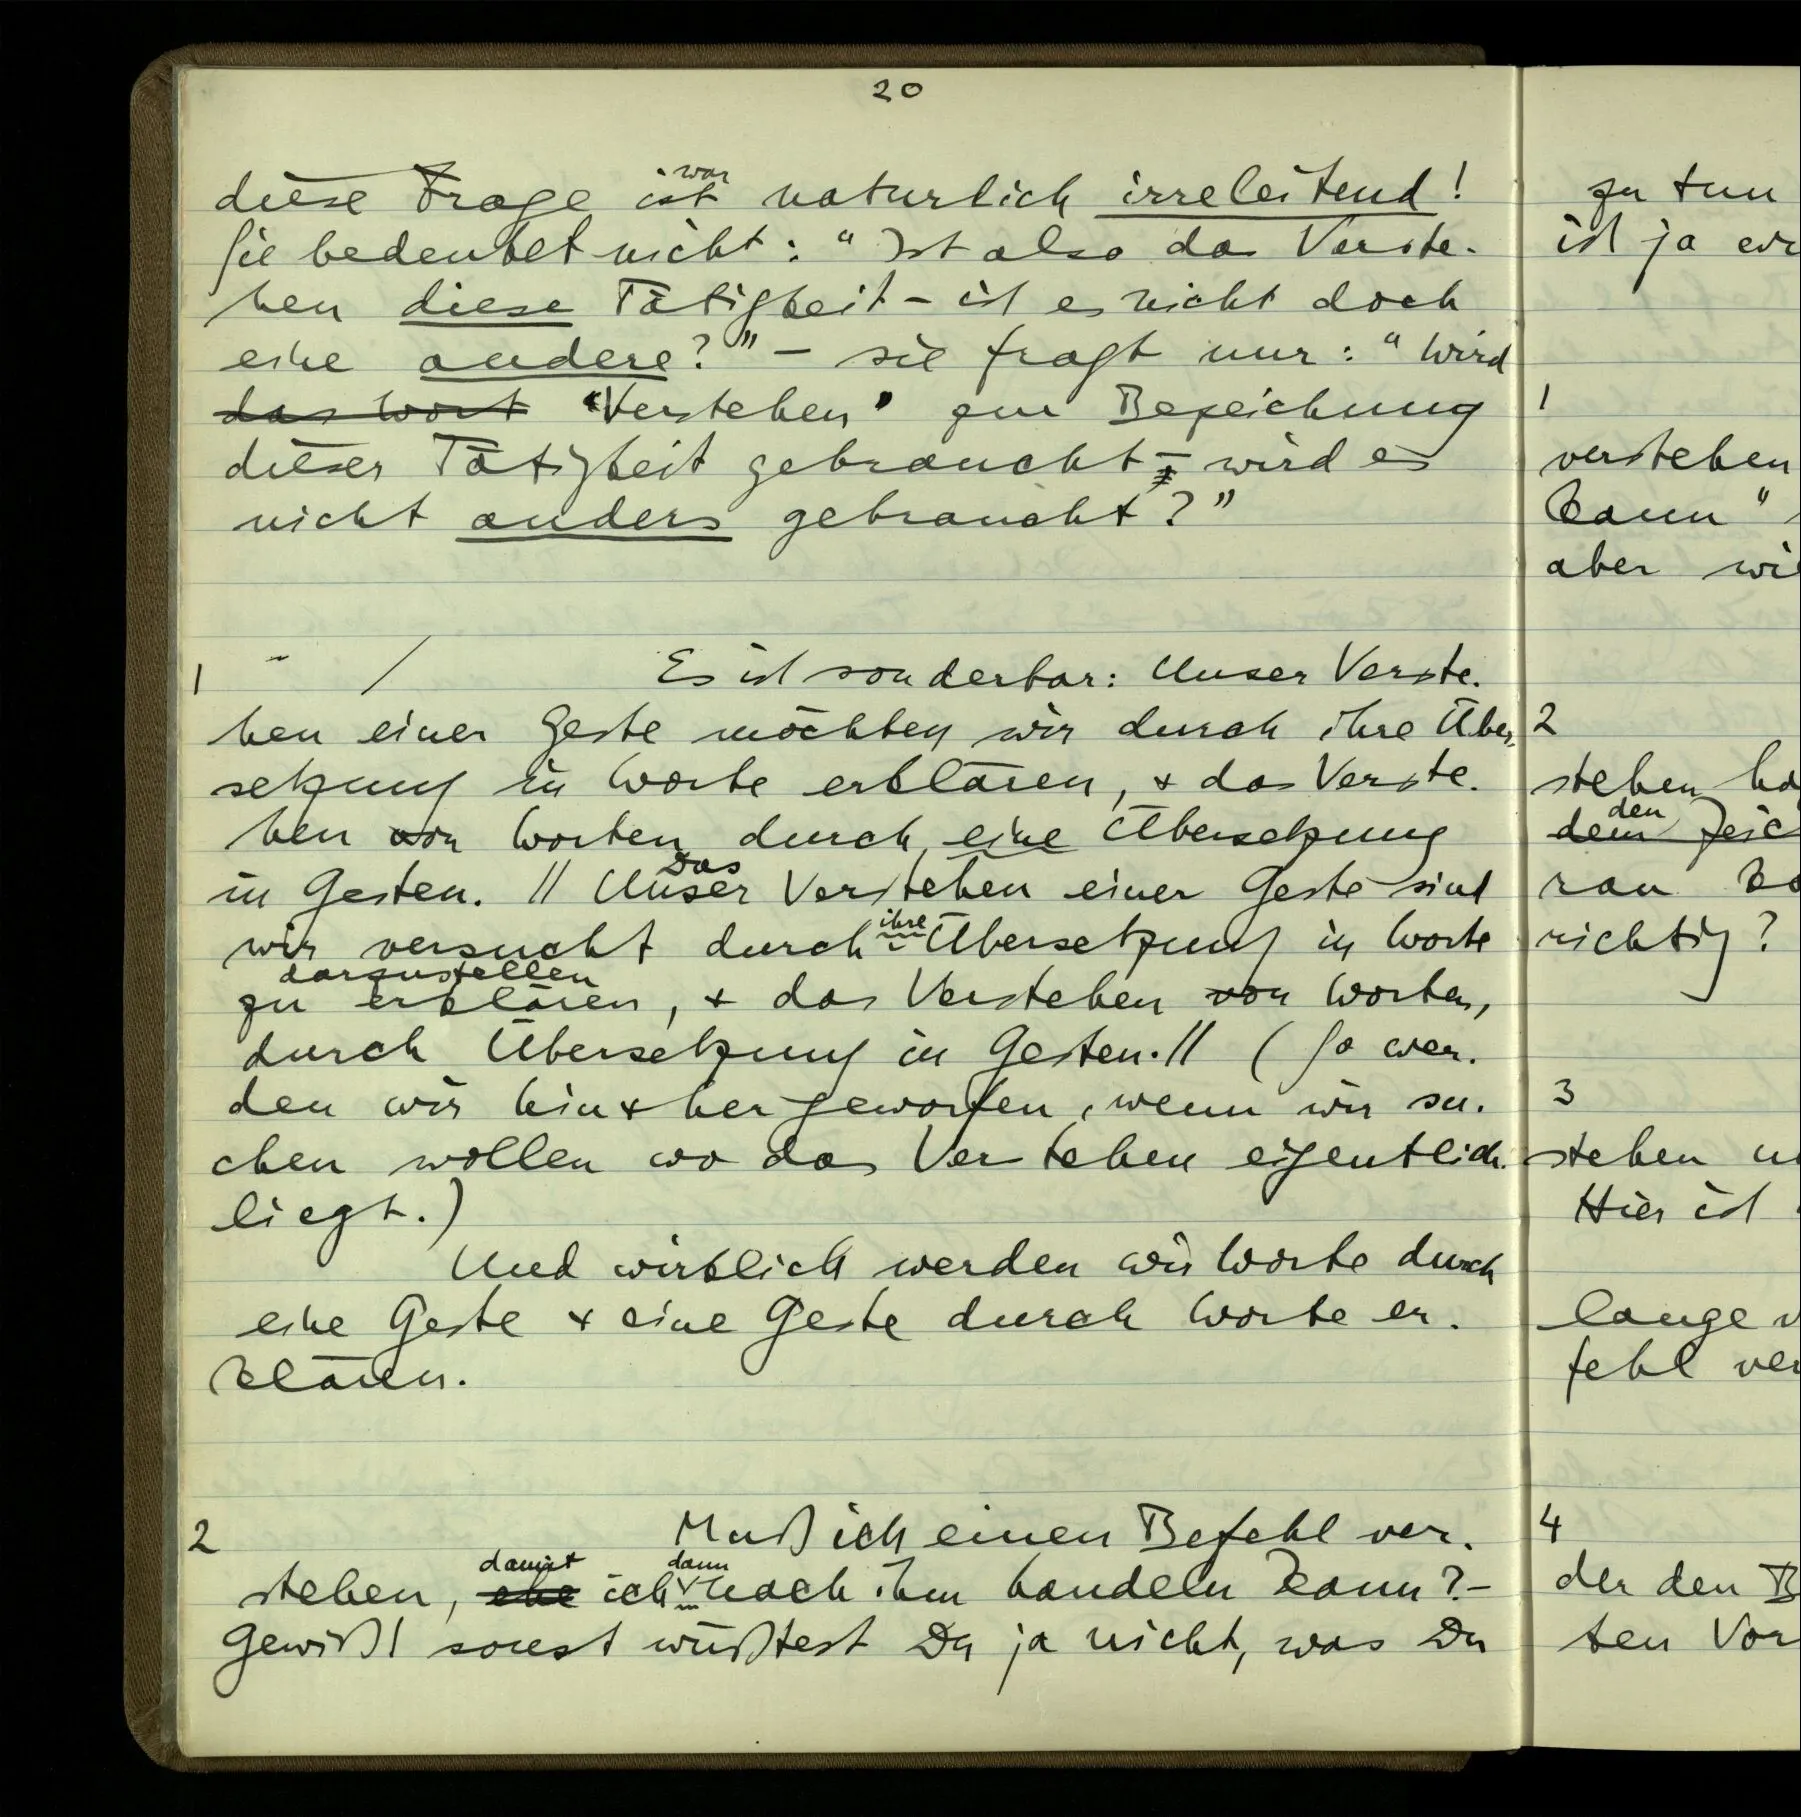 20
diese Frage ist war natürlich irreleitend!
Sie bedeutet nicht: "Ist also das Verste-
hen diese Tätigkeit – ist es nicht doch
eine andere?" – sie fragt nur: "Wird
das Wort 'Verstehen' zur Bezeichnung
dieser Tätigkeit gebraucht – wird es
nicht anders gebraucht?"
1 - / Es ist sonderbar: Unser Verste-
hen einer Geste möchten wir durch ihre Über-
setzung in Worte erklären, & das Verste-
hen von Worten durch eine Übersetzung
Das
in Gesten. // Unser Verstehen einer Geste sind
ihre
wir versucht durch Übersetzung in Worte
darzustellen
zu erklären, & das Verstehen von Worten,
durch Übersetzung in Gesten. // (So wer-
den wir hin & her geworfen, wenn wir su-
chen wollen wo das Verstehen eigentlich
liegt.)
Und wirklich werden wir Worte durch
eine Geste & eine Geste durch Worte er-
klären.
2 Muß ich einen Befehl ver-
damit dann
stehen, ehe ich nach ihm handeln kann? –
Gewiß! sonst wüßtest Du ja nicht, was Du
zu tun
ist ja
1
verstehen
kann"
aber
2
stehen
den
dem
richtig?
3
stehen
Hier ist
lange
fehl
4
der den
ten